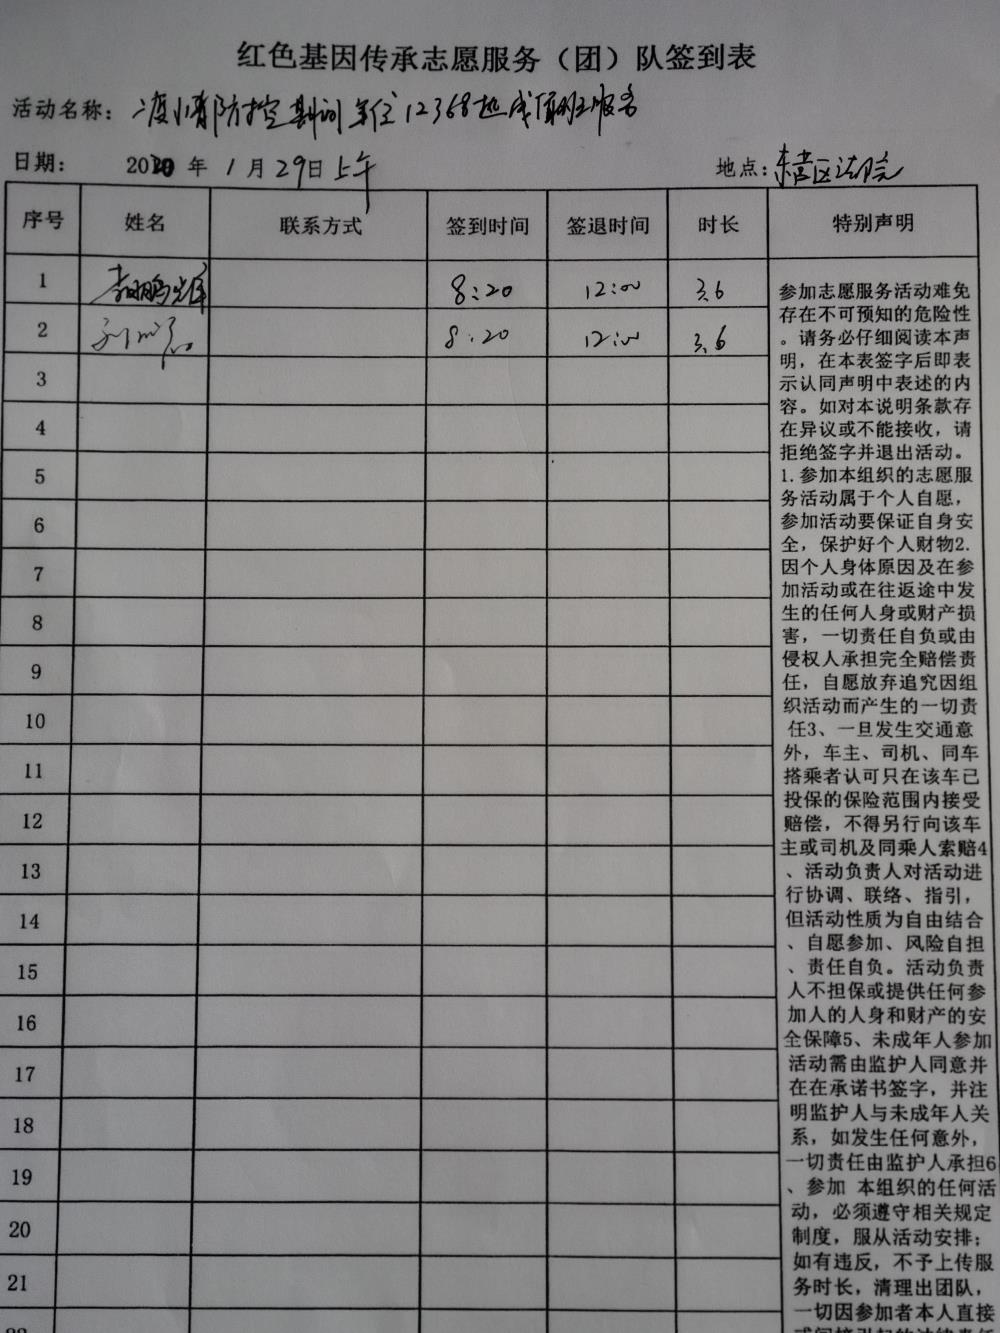 红色基因传承志愿服务（团）队签到表
活动名称：疫情防控期间单位12368热线值班服务
日期： 2020 年 1 月 29日上午 地点：东营区法院
序号 姓名 联系方式 签到时间 签退时间 时长 特别声明
1 8:20 12:00 3.6
2 8:20 12:00 3.6
3
4
5
6
7
8
9
10
11
12
13
14
15
16
17
18
19
20
21
22
参加志愿服务活动难免
存在不可预知的危险性
。请务必仔细阅读本声
明，在本表签字后即表
示认同声明中表述的内
容。如对本说明条款存
在异议或不能接收，请
拒绝签字并退出活动。
1.参加本组织的志愿服
务活动属于个人自愿，
参加活动要保证自身安
全，保护好个人财物2.
因个人身体原因及在参
加活动或在往返途中发
生的任何人身或财产损
害，一切责任自负或由
侵权人承担完全赔偿责
任，自愿放弃追究因组
织活动而产生的一切责
任3、一旦发生交通意
外，车主、司机、同车
搭乘者认可只在该车已
投保的保险范围内接受
赔偿，不得另行向该车
主或司机及同乘人索赔4
、活动负责人对活动进
行协调、联络、指引，
但活动性质为自由结合
、自愿参加、风险自担
、责任自负。活动负责
人不担保或提供任何参
加人的人身和财产的安
全保障5、未成年人参加
活动需由监护人同意并
在在承诺书签字，并注
明监护人与未成年人关
系，如发生任何意外，
一切责任由监护人承担6
、参加 本组织的任何活
动，必须遵守相关规定
制度，服从活动安排；
如有违反，不予上传服
务时长，清理出团队，
一切因参加者本人直接